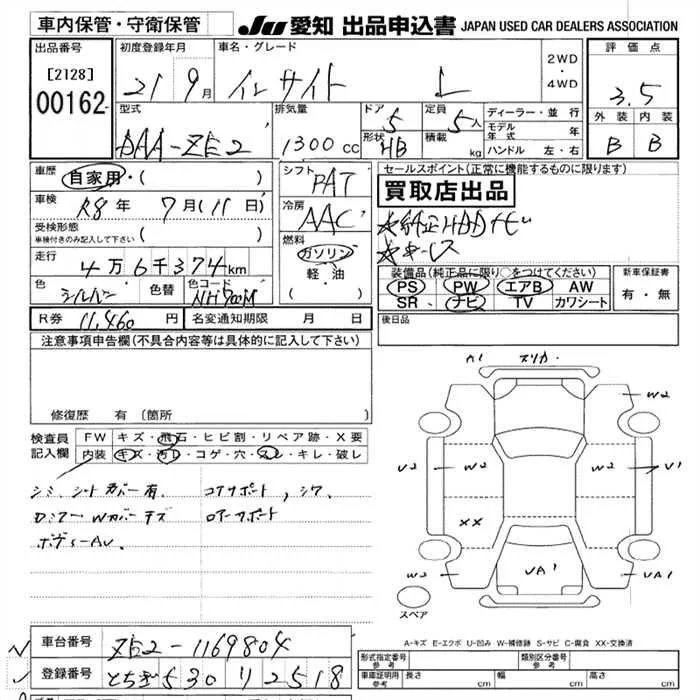 車内保管・守衛保管
JU 愛知 出品申込書 JAPAN USED CAR DEALERS ASSOCIATION
出品番号 初度登録年月 車名・グレード 2WD・4WD 評価点
[2128] 21 9月 インサイト L 3.5
00162
型式 排気量 ドア 5 定員 5人 ディーラー・並行 外装 内装
DAA-ZE2 1300cc 形状 HB 積載 kg モデル年式 年 B B
ハンドル 左・右
車歴 自家用・( ) シフト PAT セールスポイント(正常に機能するものに限ります)
車検 R8年 7月(11日) 冷房 AAC 買取店出品
受検形態 車検付きのみ記入して下さい ( ) ☆純正HDDナビ
走行 4万6千374km 燃料 ガソリン・軽油 ( )
色 シルバー 色替 色コード NH700M 装備品(純正品に限り○をつけてください) 新車保証書
PS PW エアB AW 有・無
SR ナビ TV カワシート
R券 11,460円 名変通知期限 月 日 後日品
注意事項申告欄(不具合内容等は具体的に記入して下さい)
修復歴 有(箇所
検査員記入欄 FW キズ・飛石・ヒビ割・リペア跡・X要
内装 キズ・汚レ・コゲ・穴・スレ・キレ・破レ
シミ、シートカバー有、コアサポート、シワ
ロアーサポート
A1
W2
U2 W2 W2 U1
XX
W2 UA1 UA1
スペア
A-キズ E-エクボ U-凹み W-補修跡 S-サビ C-腐食 XX-交換済
車台番号 ZE2-1169804
登録番号 とちぎ530り2518
形式指定番号 参考 類別区分番号 参考
車庫証明用 参考 長さ cm 幅 cm 高さ cm